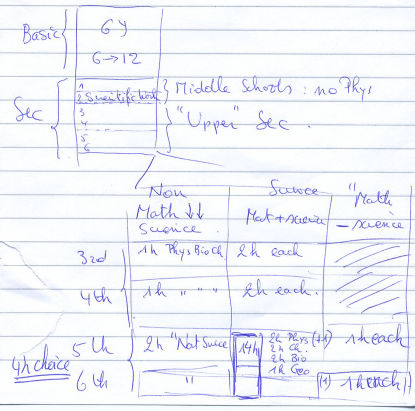 Basic
6 y
6→12
Sec
1
2 Scientific
3
4
5
6
Middle Schools : no Phys
"Upper" Sec.
Non
Math ↓↓
Science
Science
Mat + science
"Math
- science
3rd
1h Phys Bio Ch
2h each
4th
1h " " "
2h each.
5th
2h "Nat Science
14h
2h Phys (+1)
2h Ch.
2h Bio
1h Geo
1h each
4h choice
6th
"
(1) 1h each